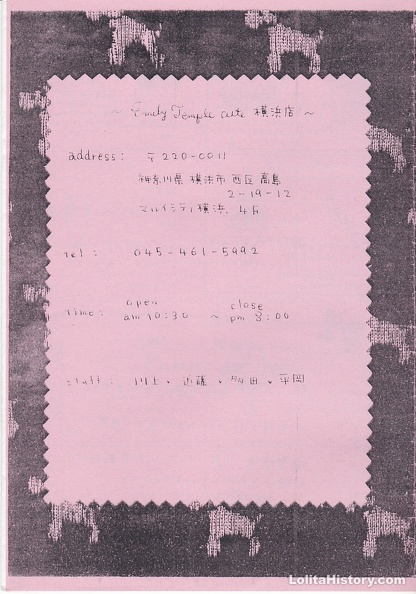 ~ Emily Temple cute 横浜店 ~
address: 〒220-0011
神奈川県 横浜市 西区 高島
2-19-12
マルイシティ横浜, 4F
tel: 045-461-5992
open close
time: am 10:30 ~ pm 8:00
staff: 川上、近藤、多田、平岡
LolitaHistory.com